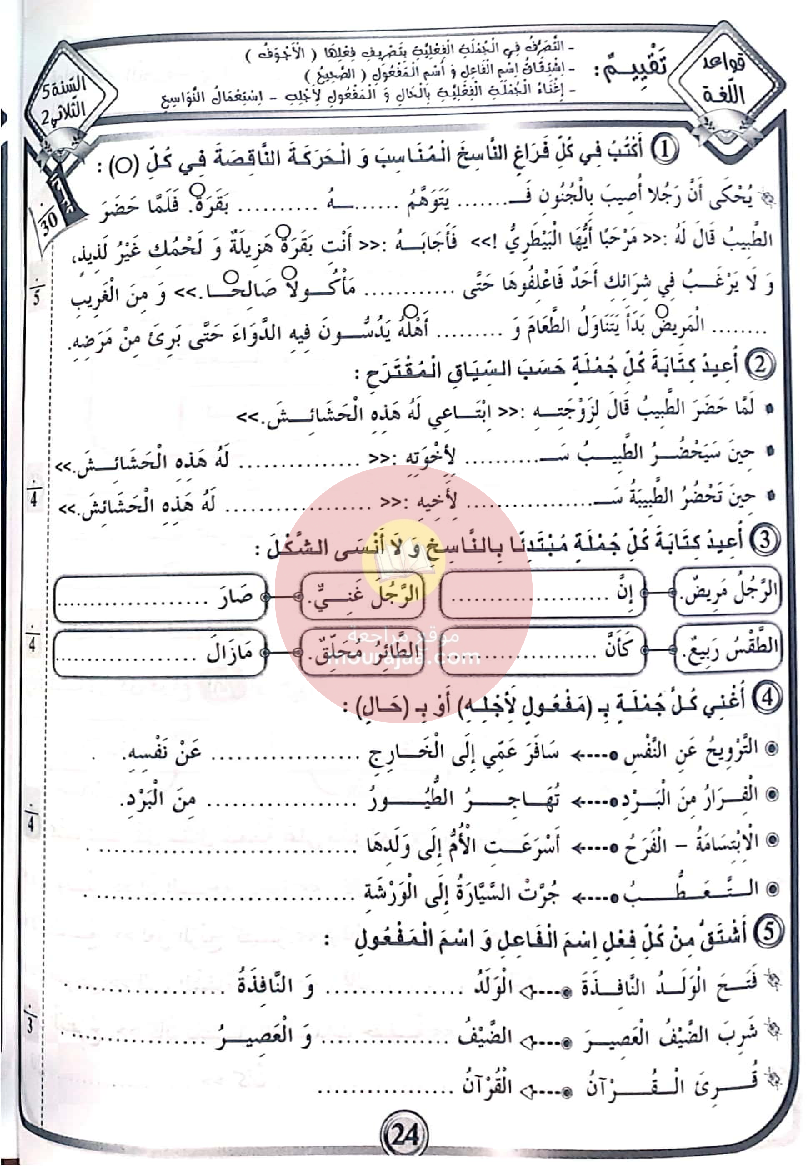 قواعد اللّغة
تَقْيِيمٌ :
- التَّصَرُّفُ فِي الْجُمْلَةِ الْفِعْلِيَّةِ بِتَصْرِيفِ فِعْلِهَا ( الْأَجْوَفُ )
- اِشْتِقَاقُ اِسْمِ الْفَاعِلِ وَ اسْمِ الْمَفْعُولِ ( الصَّحِيحُ )
- إِغْنَاءُ الْجُمْلَةِ الْفِعْلِيَّةِ بِالْحَالِ وَ الْمَفْعُولِ لِأَجْلِهِ - اِسْتِعْمَالُ النَّوَاسِخِ
السّنة 5
الثّلاثي 2
30
1 أَكْتُبُ فِي كُلِّ فَرَاغٍ النَّاسِخَ الْمُنَاسِبَ وَ الْحَرَكَةَ النَّاقِصَةَ فِي كُلِّ (○) :
يُحْكَى أَنَّ رَجُلا أُصِيبَ بِالْجُنُونِ فَـ....... يَتَوَهَّمُ .......ـهُ .......... بَقَرَة. فَلَمَّا حَضَرَ
الطَّبِيبُ قَالَ لَهُ :<< مَرْحَبًا أَيُّهَا الْبَيْطَرِيُّ !>> فَأَجَابَـهُ :<< أَنْت بَقَرَة هَزِيلَةٌ وَ لَحْمُكِ غَيْرُ لَذِيذٍ،
وَ لَا يَرْغَـبُ فِي شِرَائِكِ أَحَدٌ فَاعْلِفُوهَا حَتَّى ............ مَأْكُـولا صَالِحًـا.>> وَ مِنَ الْغَرِيبِ
........ الْمَرِيض بَدَأَ يَتَنَاوَلُ الطَّعَامَ وَ ......... أَهْلُه يَدُسُّـونَ فِيهِ الدَّوَاءَ حَتَّى بَرِئَ مِنْ مَرَضِهِ.
5
2 أُعِيدُ كِتَابَةَ كُلِّ جُمْلَةٍ حَسَبَ السِّيَاقِ الْمُقْتَرَحِ :
• لَمَّا حَضَرَ الطَّبِيبُ قَالَ لِزَوْجَتِـهِ :<< ابْتَـاعِي لَهُ هَذِهِ الْحَشَائِـشَ.>>
• حِينَ سَيَحْضُـرُ الطَّبِيـبُ سَـ.......... لِأُخْوَتِهِ :<< ............... لَهُ هَذِهِ الْحَشَائِـشَ.>>
• حِينَ تَحْضُرُ الطَّبِيبَةُ سَـ................. لِأَخِيهِ :<< ................. لَهُ هَذِهِ الْحَشَائِـشَ.>>
4
3 أُعِيدُ كِتَابَةَ كُلِّ جُمْلَةٍ مُبْتَدِئًا بِالنَّاسِخِ وَ لَا أَنْسَى الشَّكْلَ :
الرَّجُلُ مَرِيضٌ. إِنَّ .................... الرَّجُلُ غَنِيٌّ. صَارَ ................
الطَّقْسُ رَبِيعٌ. كَأَنَّ .................... الطَّائِرُ مُحَلِّقٌ. مَازَالَ ...............
4
موقع مراجعة
mourajaa.com
4 أُغْنِي كُلَّ جُمْلَةٍ بِـ (مَفْعُولٍ لِأَجْلِهِ) أَوْ بِـ (حَالٍ) :
التَّرْوِيحُ عَنِ النَّفْسِ سَافَرَ عَمِّي إِلَى الْخَـارِجِ .................. عَنْ نَفْسِهِ.
الْفِرَارُ مِنَ الْبَـرْدِ تُهَـاجِـرُ الطُّيُـورُ .................. مِنَ الْبَرْدِ.
الْاِبْتِسَامَةُ - الْفَرَحُ أَسْرَعَـتِ الْأُمُّ إِلَى وَلَدِهَا ............................... .
التَّـعَـطُّـبُ جُرَّتْ السَّيَّارَةُ إِلَى الْوَرْشَةِ ............................... .
4
5 أَشْتَقُّ مِنْ كُلِّ فِعْلٍ اِسْمَ الْفَاعِلِ وَ اسْمَ الْمَفْعُولِ :
فَتَـحَ الْوَلَـدُ النَّافِـذَةَ الْوَلَدُ ................ وَ النَّافِذَةُ ................. .
شَرِبَ الضَّيْفُ الْعَصِيـرَ الضَّيْفُ ................ وَ الْعَصِيـرُ ................. .
قُـرِئَ الْـقُـرْآنُ الْقُرْآنُ ................
3
24